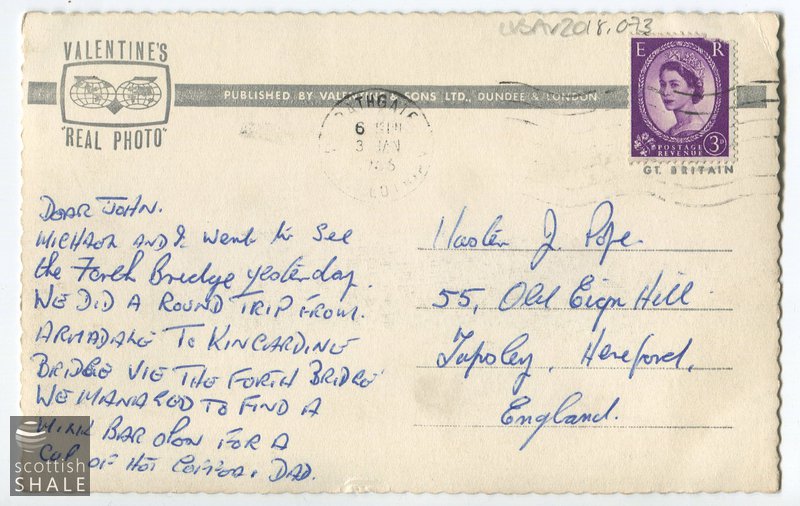 LVSAV2018.073
VALENTINE'S
"REAL PHOTO"
PUBLISHED BY VALENTINE SONS LTD., DUNDEE & LONDON
6
3 JAN
E R
POSTAGE 3D
REVENUE
GT. BRITAIN
DEAR JOHN.
MICHAEL AND I went to see
the Forth Bridge yesterday.
WE DID A ROUND TRIP FROM
ARMADALE TO KINCARDINE
BRIDGE VIE THE FORTH BRIDGE
WE MANAGED TO FIND A
MILK BAR OPEN FOR A
CUP OF HOT COFFEE. DAD.
Master J. Pope.
55, Old Eign Hill
Tupsley, Hereford,
England.
scottish
SHALE